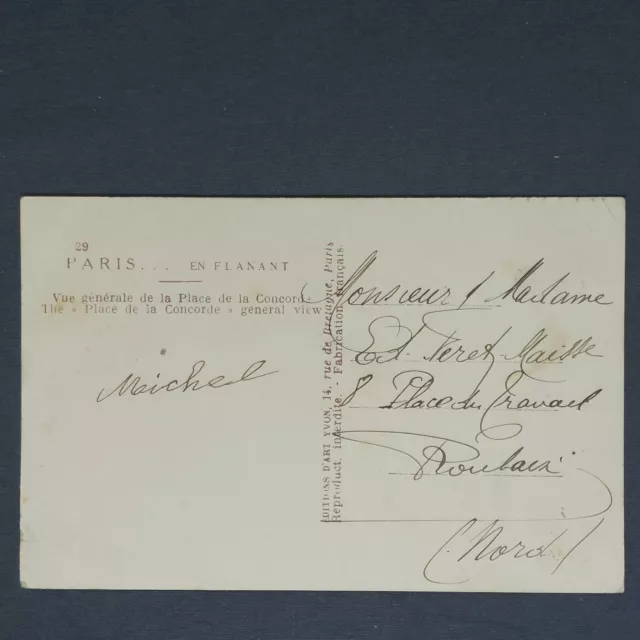 29
PARIS... EN FLANANT
Vue générale de la Place de la Concorde
The « Place de la Concorde » general view
Michel
EDITIONS D'ART YVON, 14, rue de Bretagne, Paris
Reproduct. interdite. - Fabrication Française
Monsieur / Madame
Ed. Feret-Maisse
8 Place du Travail
Roubaix
(Nord)